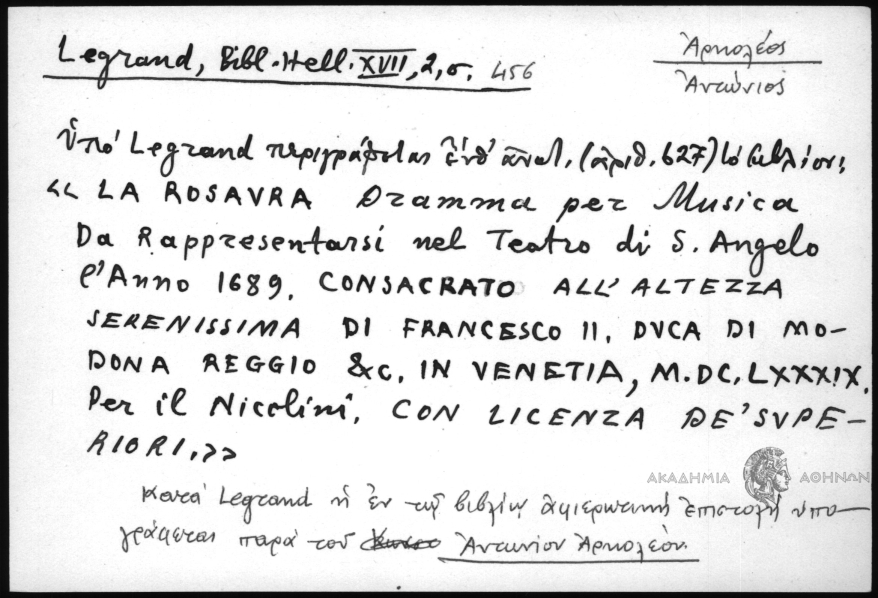 Legrand, Bibl. Hell. XVII, 2, σ. 456
Ἀρκολέος
Ἀντώνιος
ὑπό Legrand περιγράφεται ἐνθ' ἀνωτ. (ἀριθ. 627) τό βιβλίον:
<< LA ROSAVRA Dramma per Musica
Da Rappresentarsi nel Teatro di S. Angelo
l'Anno 1689. CONSACRATO ALL' ALTEZZA
SERENISSIMA DI FRANCESCO II. DVCA DI MO-
DONA REGGIO &c. IN VENETIA, M.DC.LXXXIX.
Per il Nicolini. CON LICENZA DE' SVPE-
RIORI.>>
ΑΚΑΔΗΜΙΑ ΑΘΗΝΩΝ
Κατά Legrand ἡ ἐν τῷ βιβλίῳ ἀφιερωτική ἐπιστολή ὑπο-
γράφεται παρά τοῦ Ἀντωνίου Ἀρκολέου.